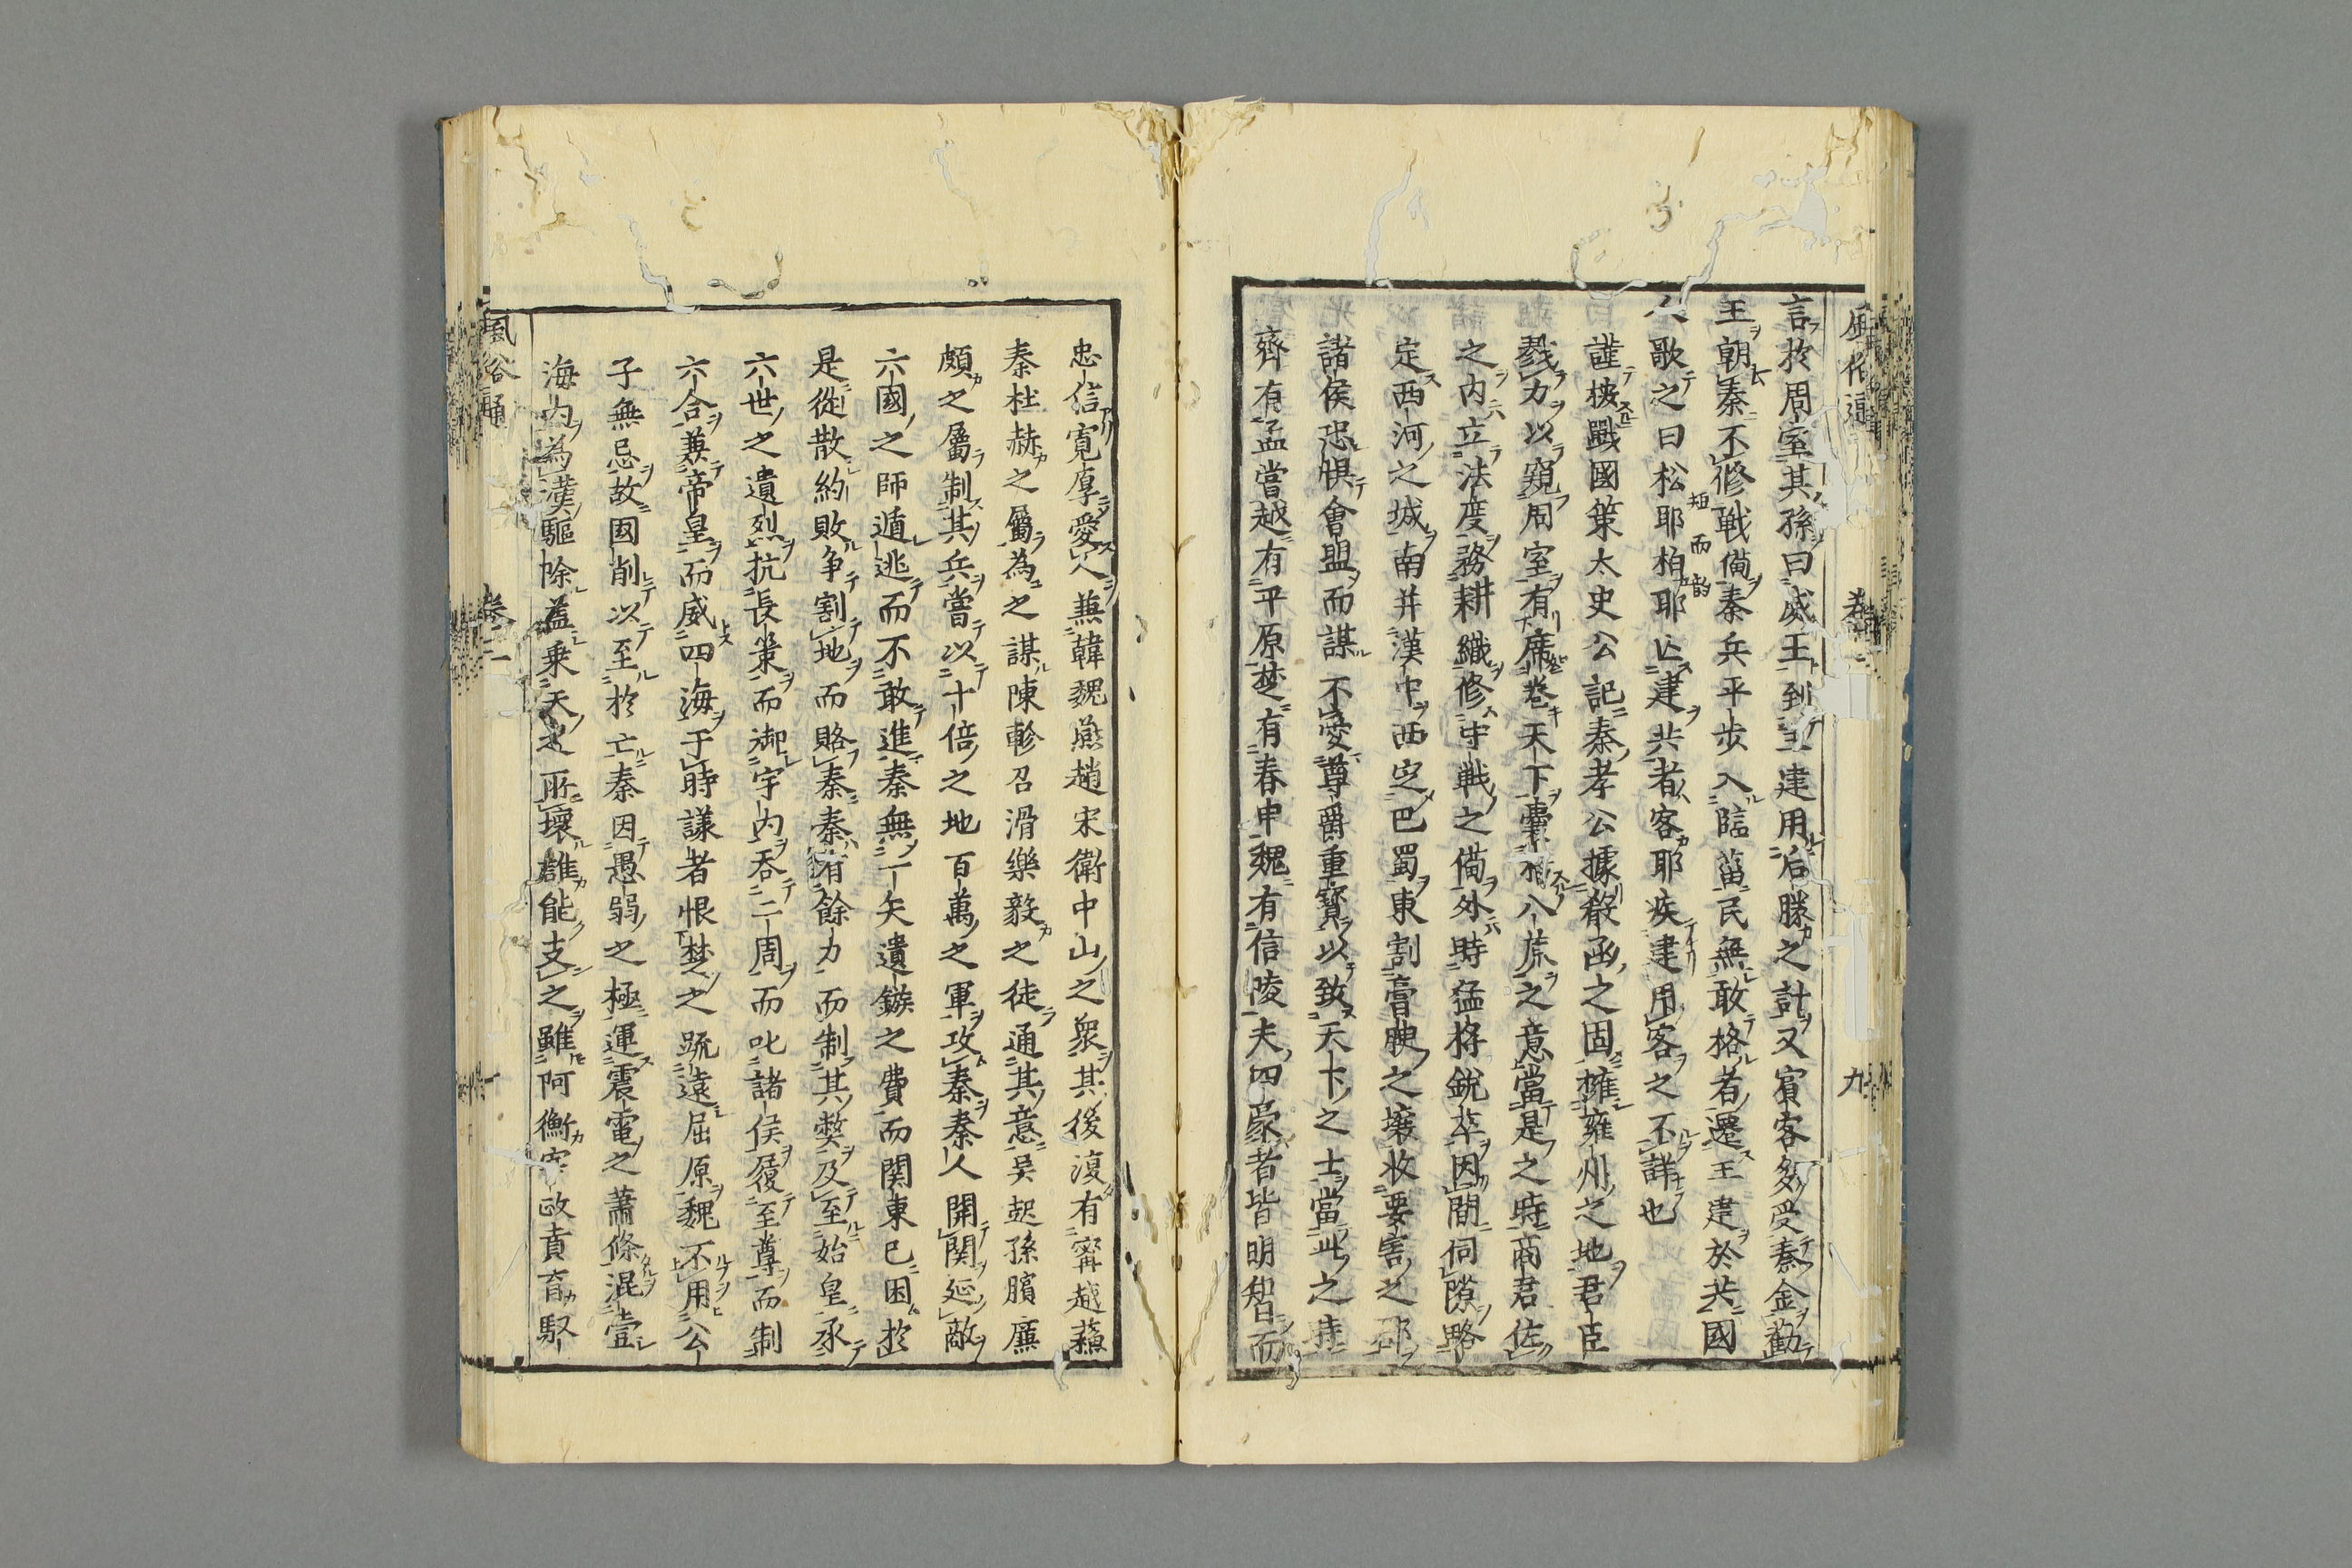 風俗通 卷一 九
言於周室其孫曰威王到王建用后勝之計又賔客多受秦金勸
王朝秦不修戦備秦兵平步入臨菑民無敢格者遷王建於共國
人歌之曰松耶栢耶亡建共者客耶疾建用客之不詳也
謹桉戰國策太史公記秦孝公據殽函之固擁雍州之地君臣
戮力以窺周室有席卷天下囊括八荒之意當是之時商君佐
之内立法度務耕織修守戦之備外時猛将鋭卒因間伺隙略
定西河之城南并漢中西定巴蜀東割膏腴之壌收要害之郡
諸侯恐惧會盟而謀不愛尊爵重寳以致天下之士當此之時
齊有孟嘗越有平原楚有春申魏有信陵夫四豪者皆明智而
忠信寛厚愛人兼韓魏燕趙宋衛中山之衆其後復有甯越蘓
秦杜赫之屬為之謀陳軫召滑樂毅之徒通其意吴起孫臏廉
頗之屬制其兵嘗以十倍之地百萬之軍攻秦秦人開関延敵
六國之師遁逃而不敢進秦無一矢遺鏃之費而関東已困於
是從散約敗争割地而賂秦秦有餘力而制其弊及至始皇承
六世之遺烈抗長策而御宇内吞二周而叱諸侯履至尊而制
六合兼帝皇而威四海于時謙者恨楚之疏遠屈原魏不用公
子無忌故國削以至於亡秦因愚弱之極運震電之蕭條混壹
海内為漢驅除蓋乗天之所壞誰能支之雖阿衡宰政賁育馭
風俗通 卷一